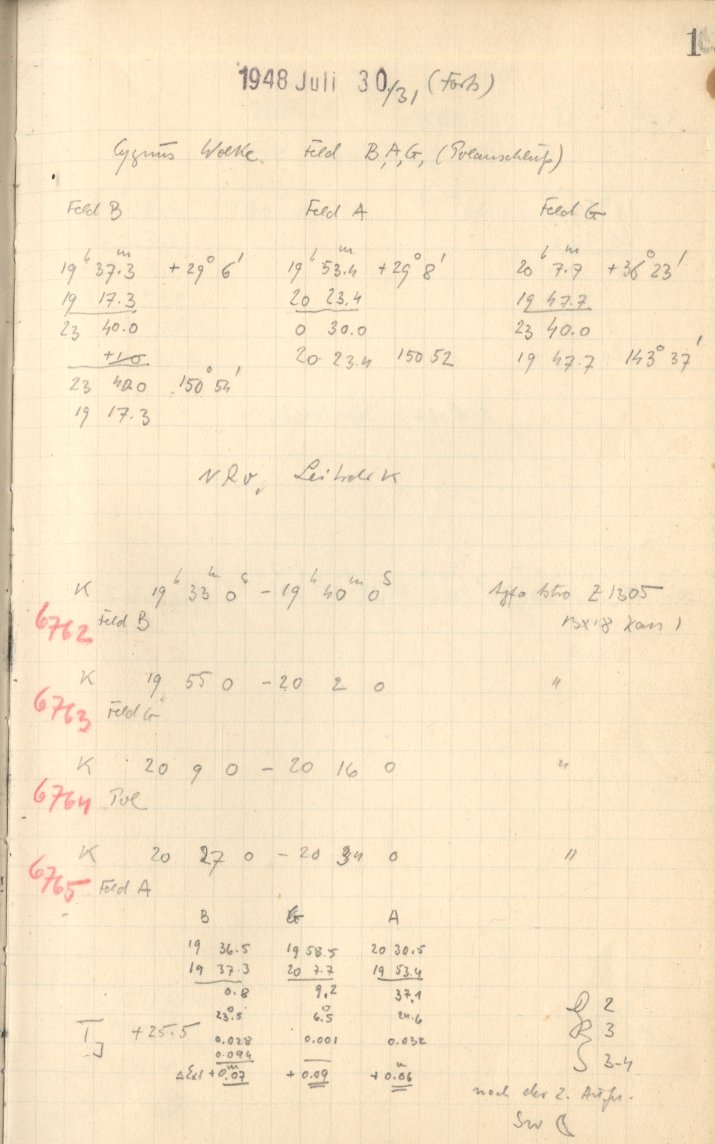 1
1948 Juli 30/31 (Forts)
Cygnus Wolke Feld B, A, G, (Polanschluß)
Feld B Feld A Feld G
19h 37.m3 +29° 6' 19h 53.m4 +29° 8' 20h 7.m7 +36° 23'
19 17.3 20 23.4 19 47.7
23 40.0 0 30.0 23 40.0
+1.0 20 23.4 150 52 19 47.7 143° 37'
23 40.0 150° 54'
19 17.3
K 19h 33m 0s – 19h 40m 0s Agfa Astro Z 1305
6762 Feld B
K 19 55 0 – 20 2 0 "
6763 Feld G
K 20 9 0 – 20 16 0 "
6764 Pol
K 20 27 0 – 20 34 0 "
6765 Feld A
B G A
19 36.5 19 58.5 20 30.5
19 37.3 20 7.7 19 53.4
0.8 9.2 37.1
23°.5 6°.5 24.6
+25.5 0.028 0.001 0.032
0.094
ΔExt +0.m07 +0.09 +0.m06
2
3
3-4
nach der 2. Aufn.